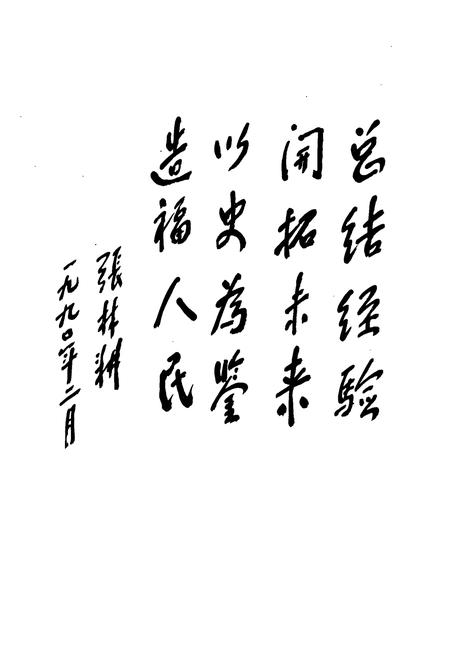 总结经验
開拓未来
以史為鉴
造福人民
張林耕
一九九〇年二月